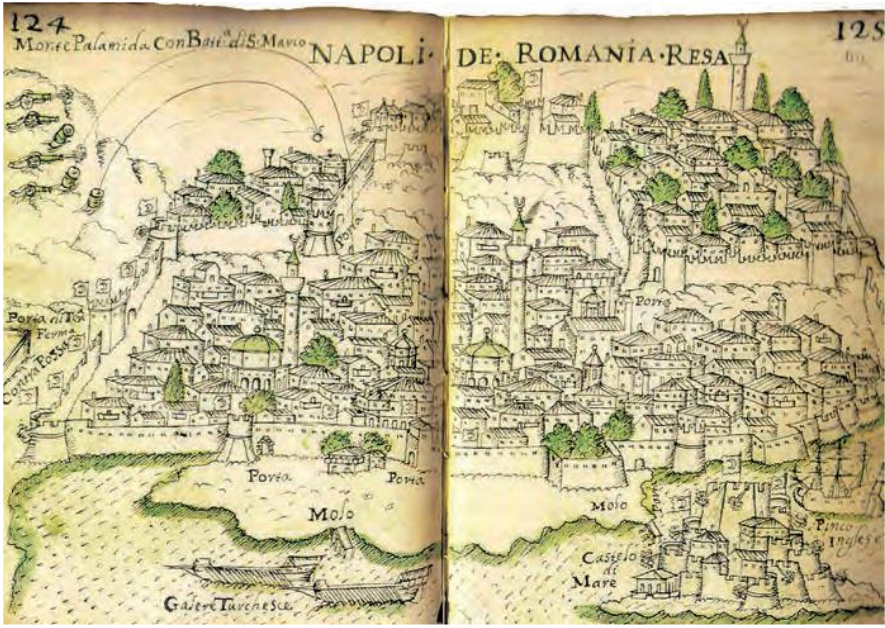 124
Monte Palamida Con Batt.a di S. Marco
NAPOLI · DE · ROMANIA · RESA
125
Porta
Porta di Tera
Ferma
Contra Fossa
Porta
Porta
Porta
Molo
Galere Turchesce
Molo
Porta
Castelo
di
Mare
Pinco
Inglese